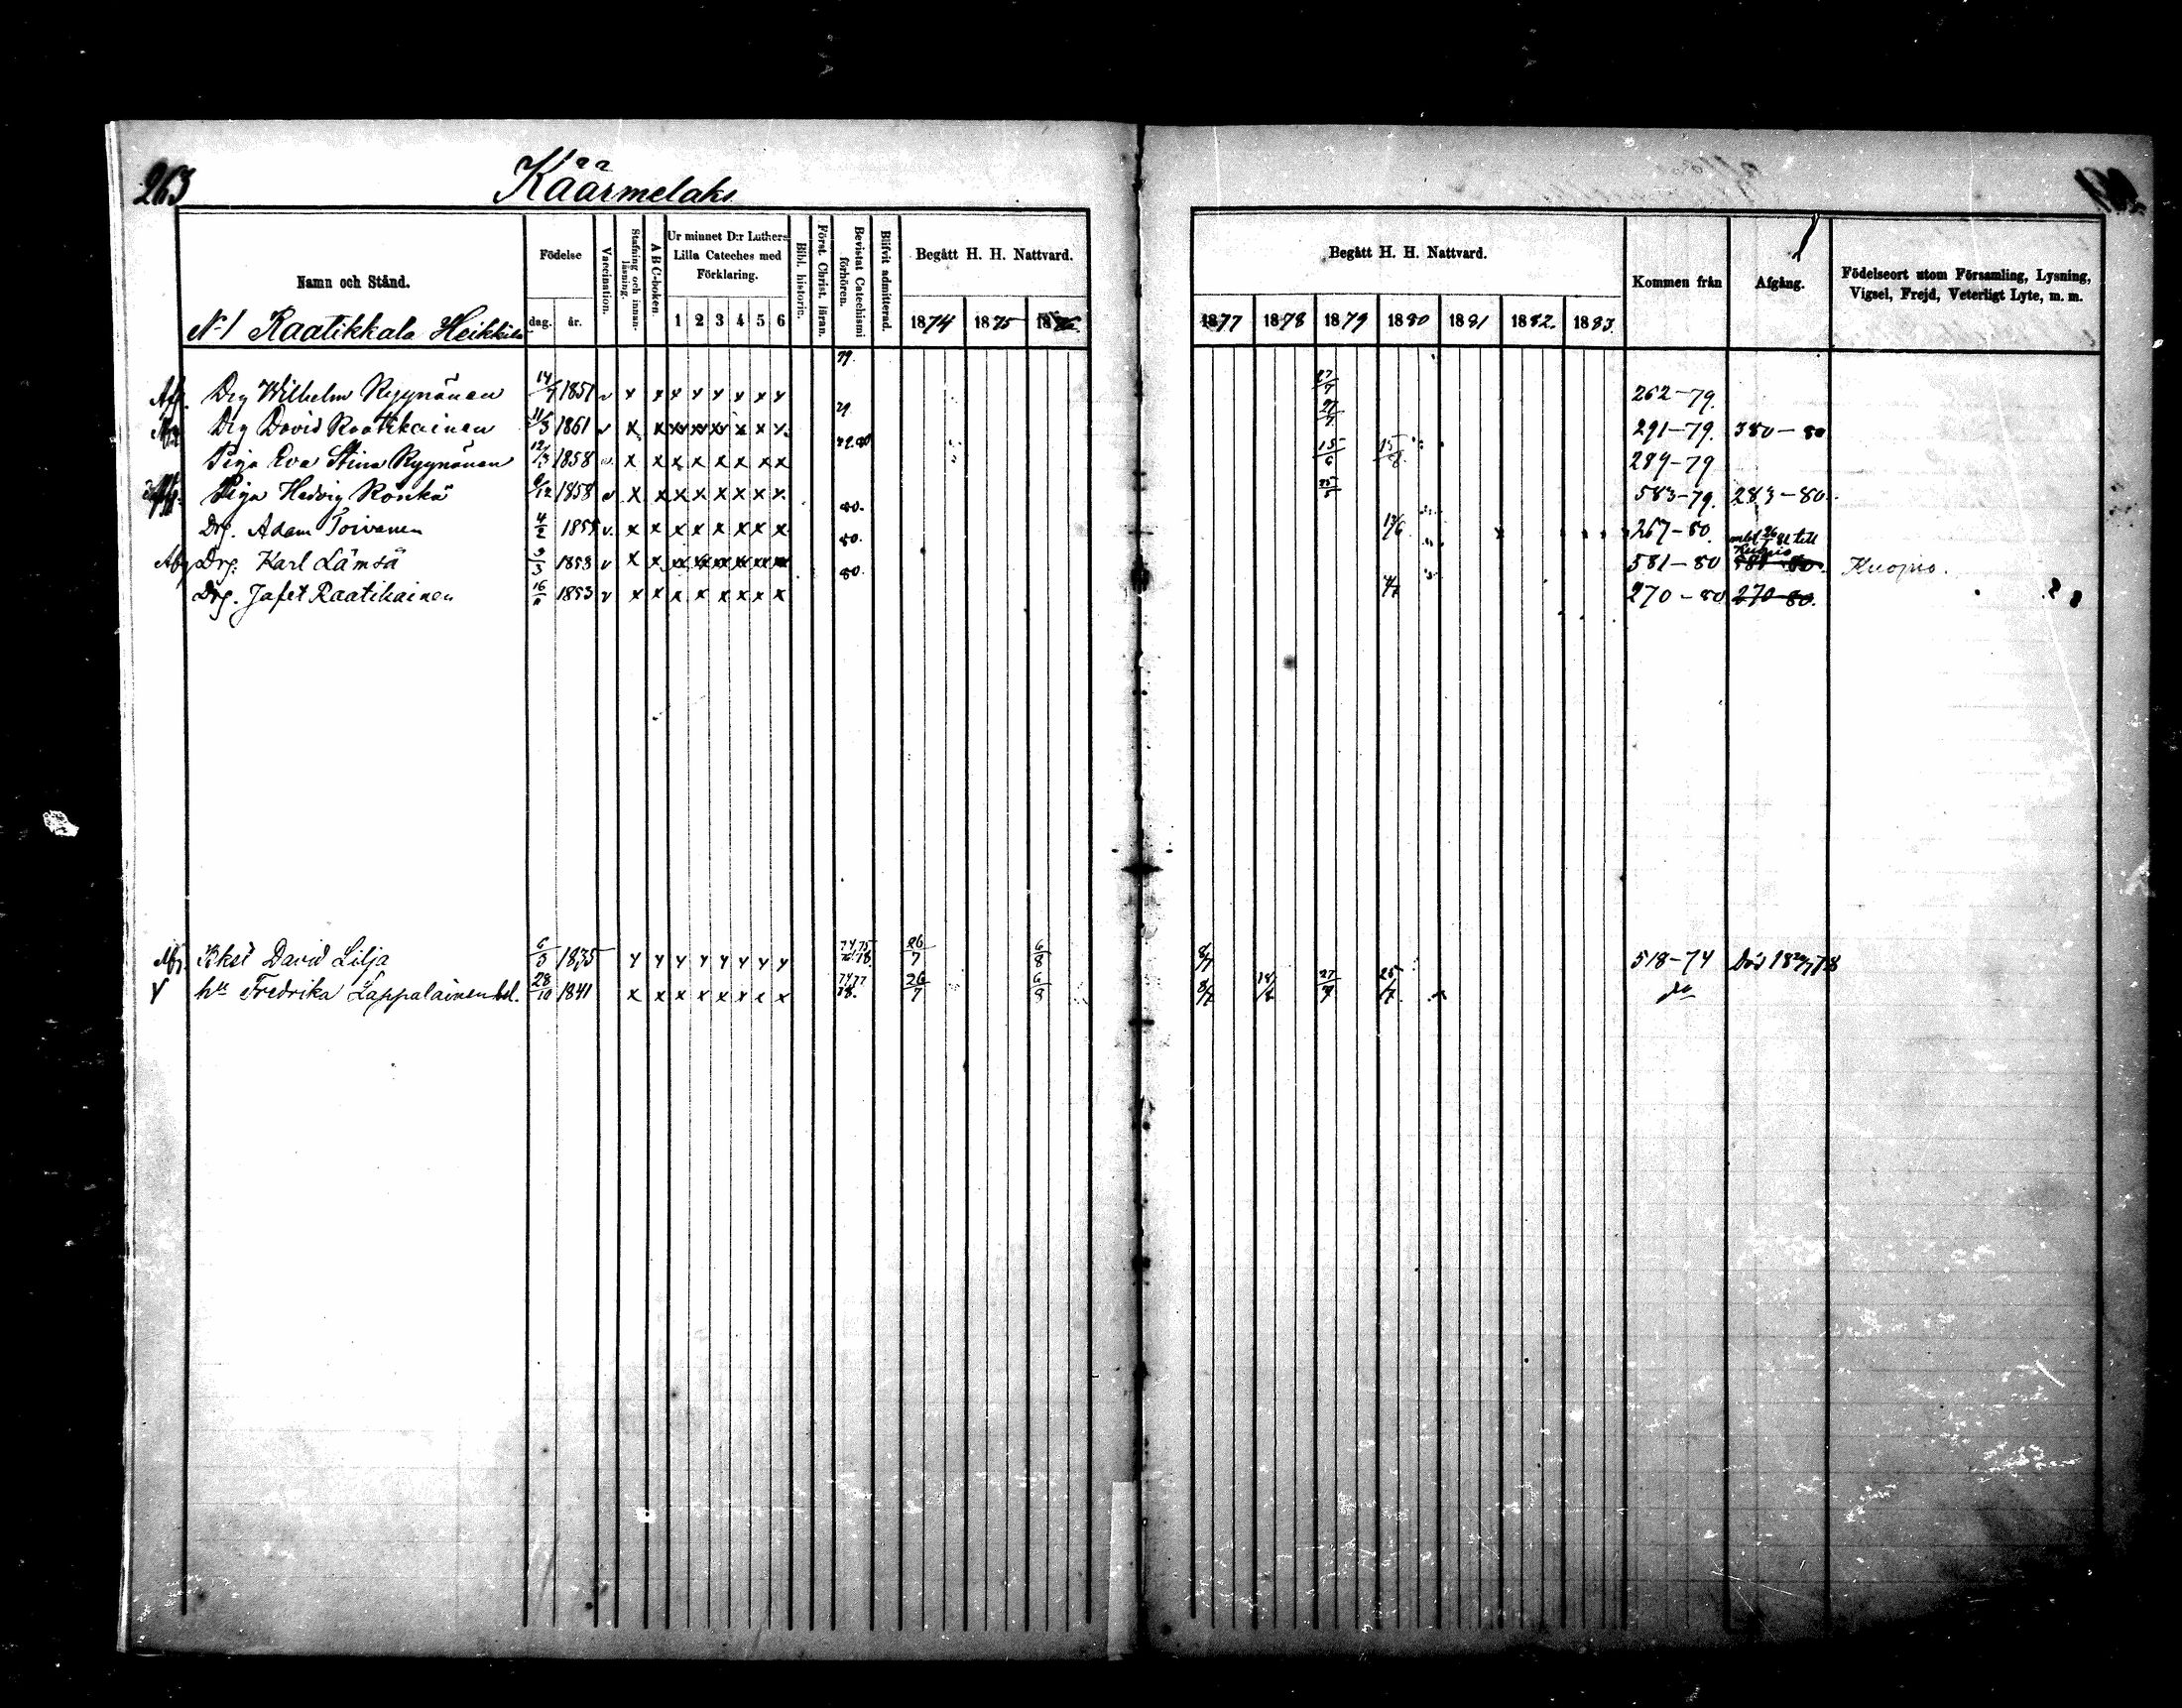 263
Käärmelaks
Namn och Stånd. Födelse Vaccination. Stafning och innanläsning. A B C-boken. Ur minnet D:r Luthers Lilla Cateches med Förklaring. Bibl. historie. Först. Christ. läran. Bevistat Catechismi förhören. Blifvit admitterad. Begått H. H. Nattvard. Begått H. H. Nattvard. Kommen från Afgång. Födelseort utom Församling, Lysning, Vigsel, Frejd, Veterligt Lyte, m. m.
N:1 Raatikkala Heikkilä dag. år. 1 2 3 4 5 6 1874 1875 1876 1877 1878 1879 1880 1881 1882. 1883
Afg. Drg Wilhelm Ryynönen 14/7 1851 v x x x x x x x x 79. 27/7 262-79.
Drg David Raatikainen 11/3 1861 v x x x x x x x x 79 27/7 291-79. 380-80
Piga Eva Stina Ryynönen 12/3 1858 v x x x x x x x x 79.80 15/6 15/8 289-79
Piga Hedvig Ronkä /12 1858 v x x x x x x x x 25/5 583-79. 283-80.
Drg. Adam Toivanen 4/2 1855 v x x x x x x x x 80. 13/6 267-80. mbt 26/1 81 till Kuopio
Drg. Karl Lämsä 3/3 1853 v x x x x x x x x 80. 581-80 581-80. Kuopio.
Drg. Jafet Raatikainen 16/11 1853 v x x x x x x x x 80. 4/7 270-80 270-80.
Afg. David Lilja 6/5 1835 x x x x x x x x 74,75 76.78. 26/7 6/8 8/7 518-74 Död 18 78
hu Fredrika Lappalainen 28/10 1841 x x x x x x x x 74 77 78. 26/7 6/8 8/7 27/7 25/7 do